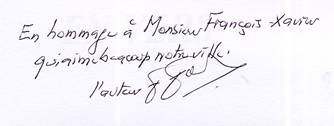 En hommage à Monsieur François-Xavier
qui aime beaucoup notre ville.
l'auteur